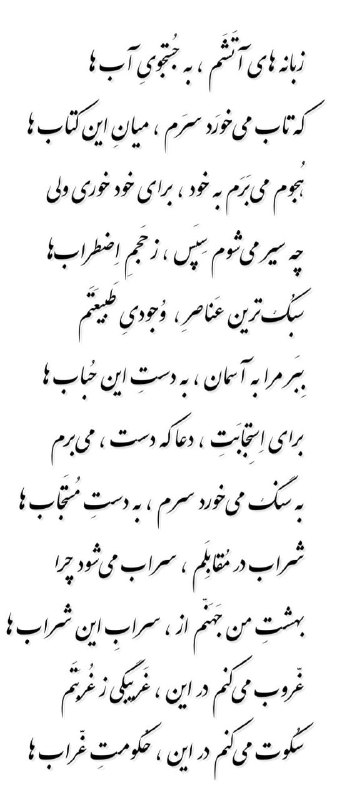 زبانه های آتَشَم ، به جُستجویِ آب ها
که تاب می‌خورَد سرَم ، میانِ این کتاب ها
هُجوم می‌بَرَم به خود ، برای خود خوری ولی
چه سیر می‌شوم سِپَس ، ز حَجمِ اِضطراب‌ها
سبُک‌ترین عَناصرِ ، وُجودیِ طَبیعَتَم
بِبَر مرا به آسمان ، به دستِ این حُباب ها
برای اِستِجابَتِ ، دعا که دست ، می‌برم
به سنگ می‌خورد سرم ، به دستِ مُستَجاب ها
شراب در مُقابِلَم ، سراب می‌شود چرا
بهشتِ من جَهَنّم از ، سرابِ این شراب ها
غُروب می‌کنم در این ، غَریبگی ز غُربَتَم
سُکوت می‌کنم در این ، حُکومتِ غُراب ها